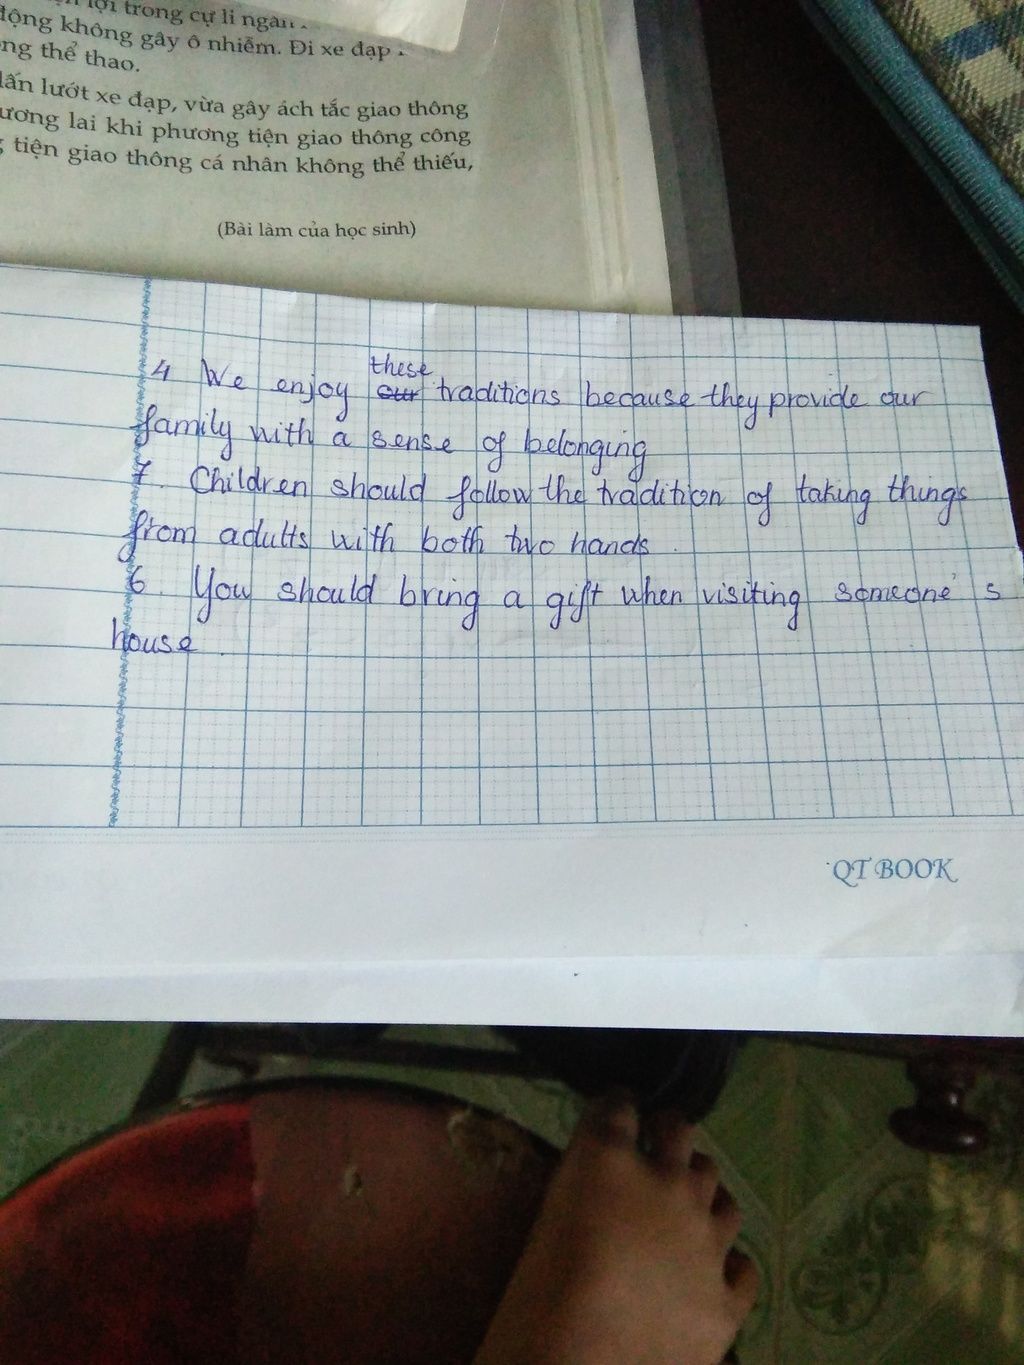 lợi trong cự li
động không gây ô nhiễm. Đi xe đạp
ng thể thao.
lấn lướt xe đạp, vừa gây ách tắc giao thông
ương lai khi phương tiện giao thông công
tiện giao thông cá nhân không thể thiếu,
(Bài làm của học sinh)
these
4 We enjoy our traditions because they provide our
family with a sense of belonging
7. Children should follow the tradition of taking things
from adults with both two hands.
6. You should bring a gift when visiting someone's
house.
QT BOOK